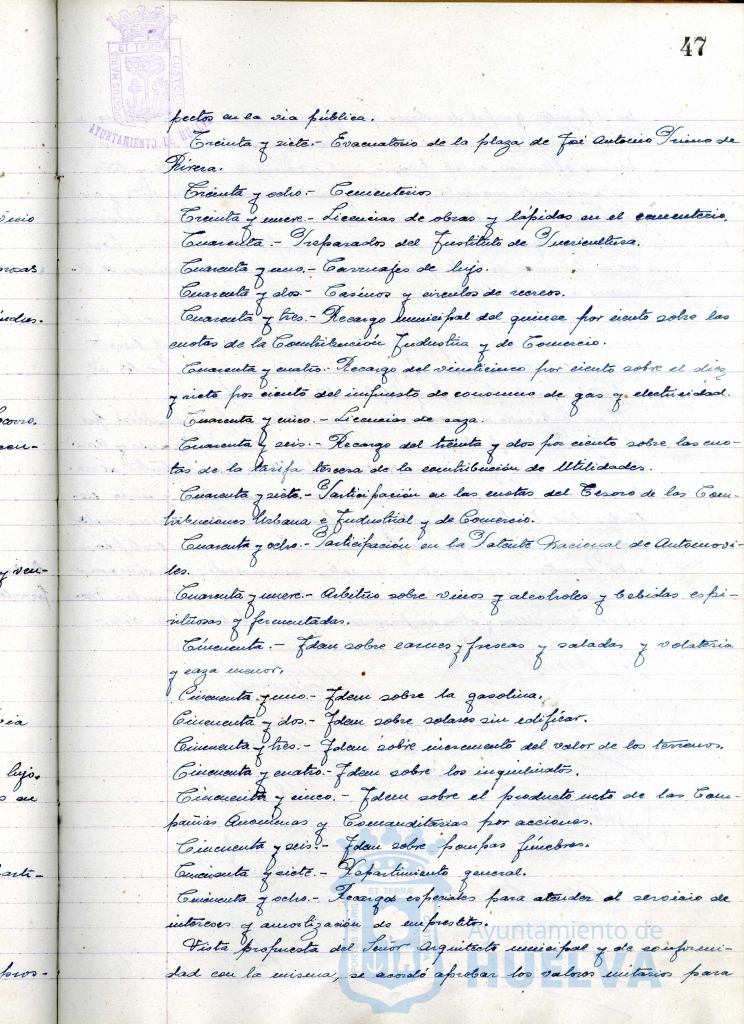 47
PORTUS MARIS ET TERRÆ CUSTODIA
AYUNTAMIENTO DE HUELVA
pectos en la via pública.
Treinta y siete.- Evacuatorio de la plaza de José Antonio Primo de
Rivera.
Treinta y ocho.- Cementerios
Treinta y nueve.- Licencias de obras y lápidas en el cementerio.
Cuarenta.- Preparados del Instituto de Puericultura.
Cuarenta y uno.- Carruajes de lujo.
Cuarenta y dos.- Casinos y circulos de recreos.
Cuarenta y tres.- Recargo municipal del quince por ciento sobre las
cuotas de la Contribución Industria y de Comercio.
Cuarenta y cuatro.- Recargo del veinticinco por ciento sobre el diez
y siete por ciento del impuesto de consumo de gas y electricidad.
Cuarenta y cinco.- Licencias de caza.
Cuarenta y seis.- Recargo del treinta y dos por ciento sobre las cuo-
tas de la tarifa tercera de la contribución de Utilidades.
Cuarenta y siete.- Participación en las cuotas del Tesoro de las Con-
tribuciones Urbana e Industrial y de Comercio.
Cuarenta y ocho.- Participación en la Patente Nacional de Automovi-
les.
Cuarenta y nueve.- Arbitrio sobre vinos y alcoholes y bebidas espi-
rituosas y fermentadas.
Cincuenta.- Idem sobre carnes y frescas y saladas y volateria
y caza menor.
Cincuenta y uno.- Idem sobre la gasolina.
Cincuenta y dos.- Idem sobre solares sin edificar.
Cincuenta y tres.- Idem sobre incremento del valor de los terrenos.
Cincuenta y cuatro.- Idem sobre los inquilinatos.
Cincuenta y cinco.- Idem sobre el producto neto de las Com-
pañias Anonimas y Comanditarias por acciones.
Cincuenta y seis.- Idem sobre pompas fúnebres.
Cincuenta y siete.- Repartimiento general.
Cincuenta y ocho.- Recargos especiales para atender al servicio de
intereses y amortización de empréstitos.
Vista propuesta del Señor Arquitecto municipal y de conformi-
dad con la misma, se acordó aprobar los valores unitarios para
Ayuntamiento de
HUELVA